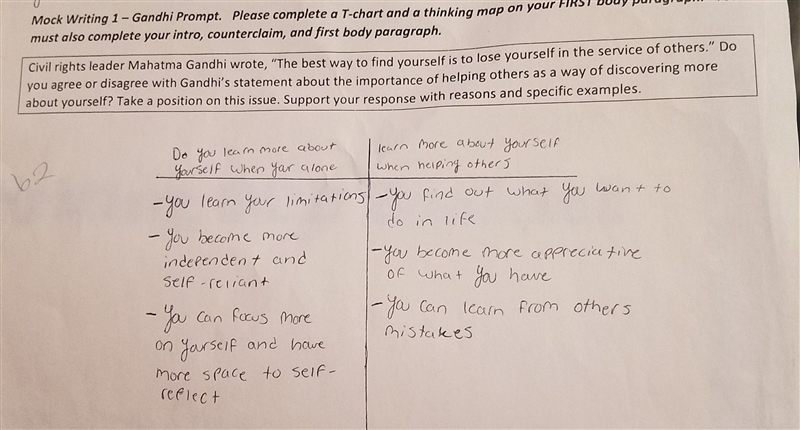 Mock Writing 1 – Gandhi Prompt. Please complete a T-chart and a thinking map on your FIRST body
must also complete your intro, counterclaim, and first body paragraph.
Civil rights leader Mahatma Gandhi wrote, “The best way to find yourself is to lose yourself in the service of others.” Do
you agree or disagree with Gandhi’s statement about the importance of helping others as a way of discovering more
about yourself? Take a position on this issue. Support your response with reasons and specific examples.
Do you learn more about
yourself when your alone
- you learn your limitations
- you become more
independent and
self-reliant
- You can focus more
on yourself and have
more space to self-
reflect
learn more about yourself
when helping others
- You find out what you want to
do in life
- you become more appreciative
of what you have
- You can learn from others
mistakes
62